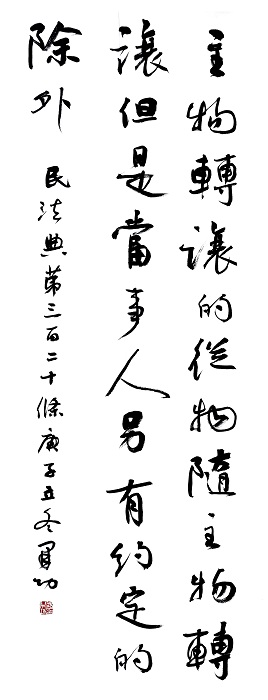 主物轉讓的從物隨主物轉
讓但是當事人另有約定的
除外
民法典第三百二十條庚子立冬